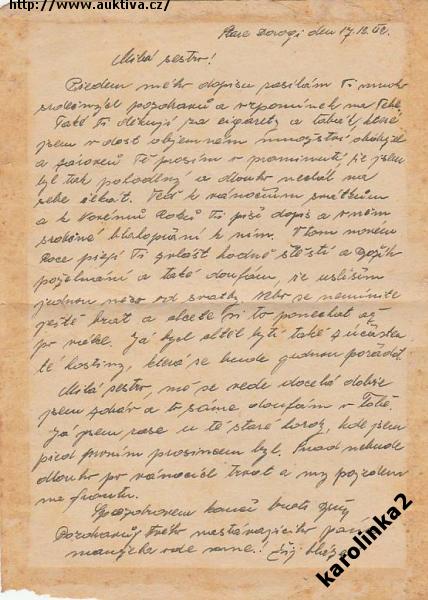 http://www.auktiva.cz/
Stare Dorogi den 17.12.
Milá sestro!
Předem mého dopisu zasílám Ti mnoho
srdečných pozdravů a vzpomínek na Tebe.
Také Ti děkuji za cigarety a tabák, které
jsem v dost objemném množství obdržel
a zároveň Tě prosím v prominutí, že jsem
byl tak pohodlný a dlouho nechal na
sebe čekat. Teď k vánočním svátkům
a k Novému Roku Ti píši dopis a v něm
srdečné blahopřání k nim. V tom novém
Roce přeji Ti zvlášť hodně štěstí a Božích
požehnání a také doufám, že uslyším
jednou něco od svatby. Nebo se nemíníte
ještě brát a chcete si to ponechat až
po válce. Já bych chtěl býti také účasten
té hostiny, která se bude jednou pořádat.
Milá sestro, mě se vede docela dobře
jsem zdráv a to samé doufám v Tobě.
Já jsem zase u té staré, kde jsem
před prvním prosincem byl. Snad nebude
dlouho po vánocích trvat a my pojedem
na frontu.
S pozdravem končí bratr
Pozdravuj Tvého nastávajícího
karolinka2